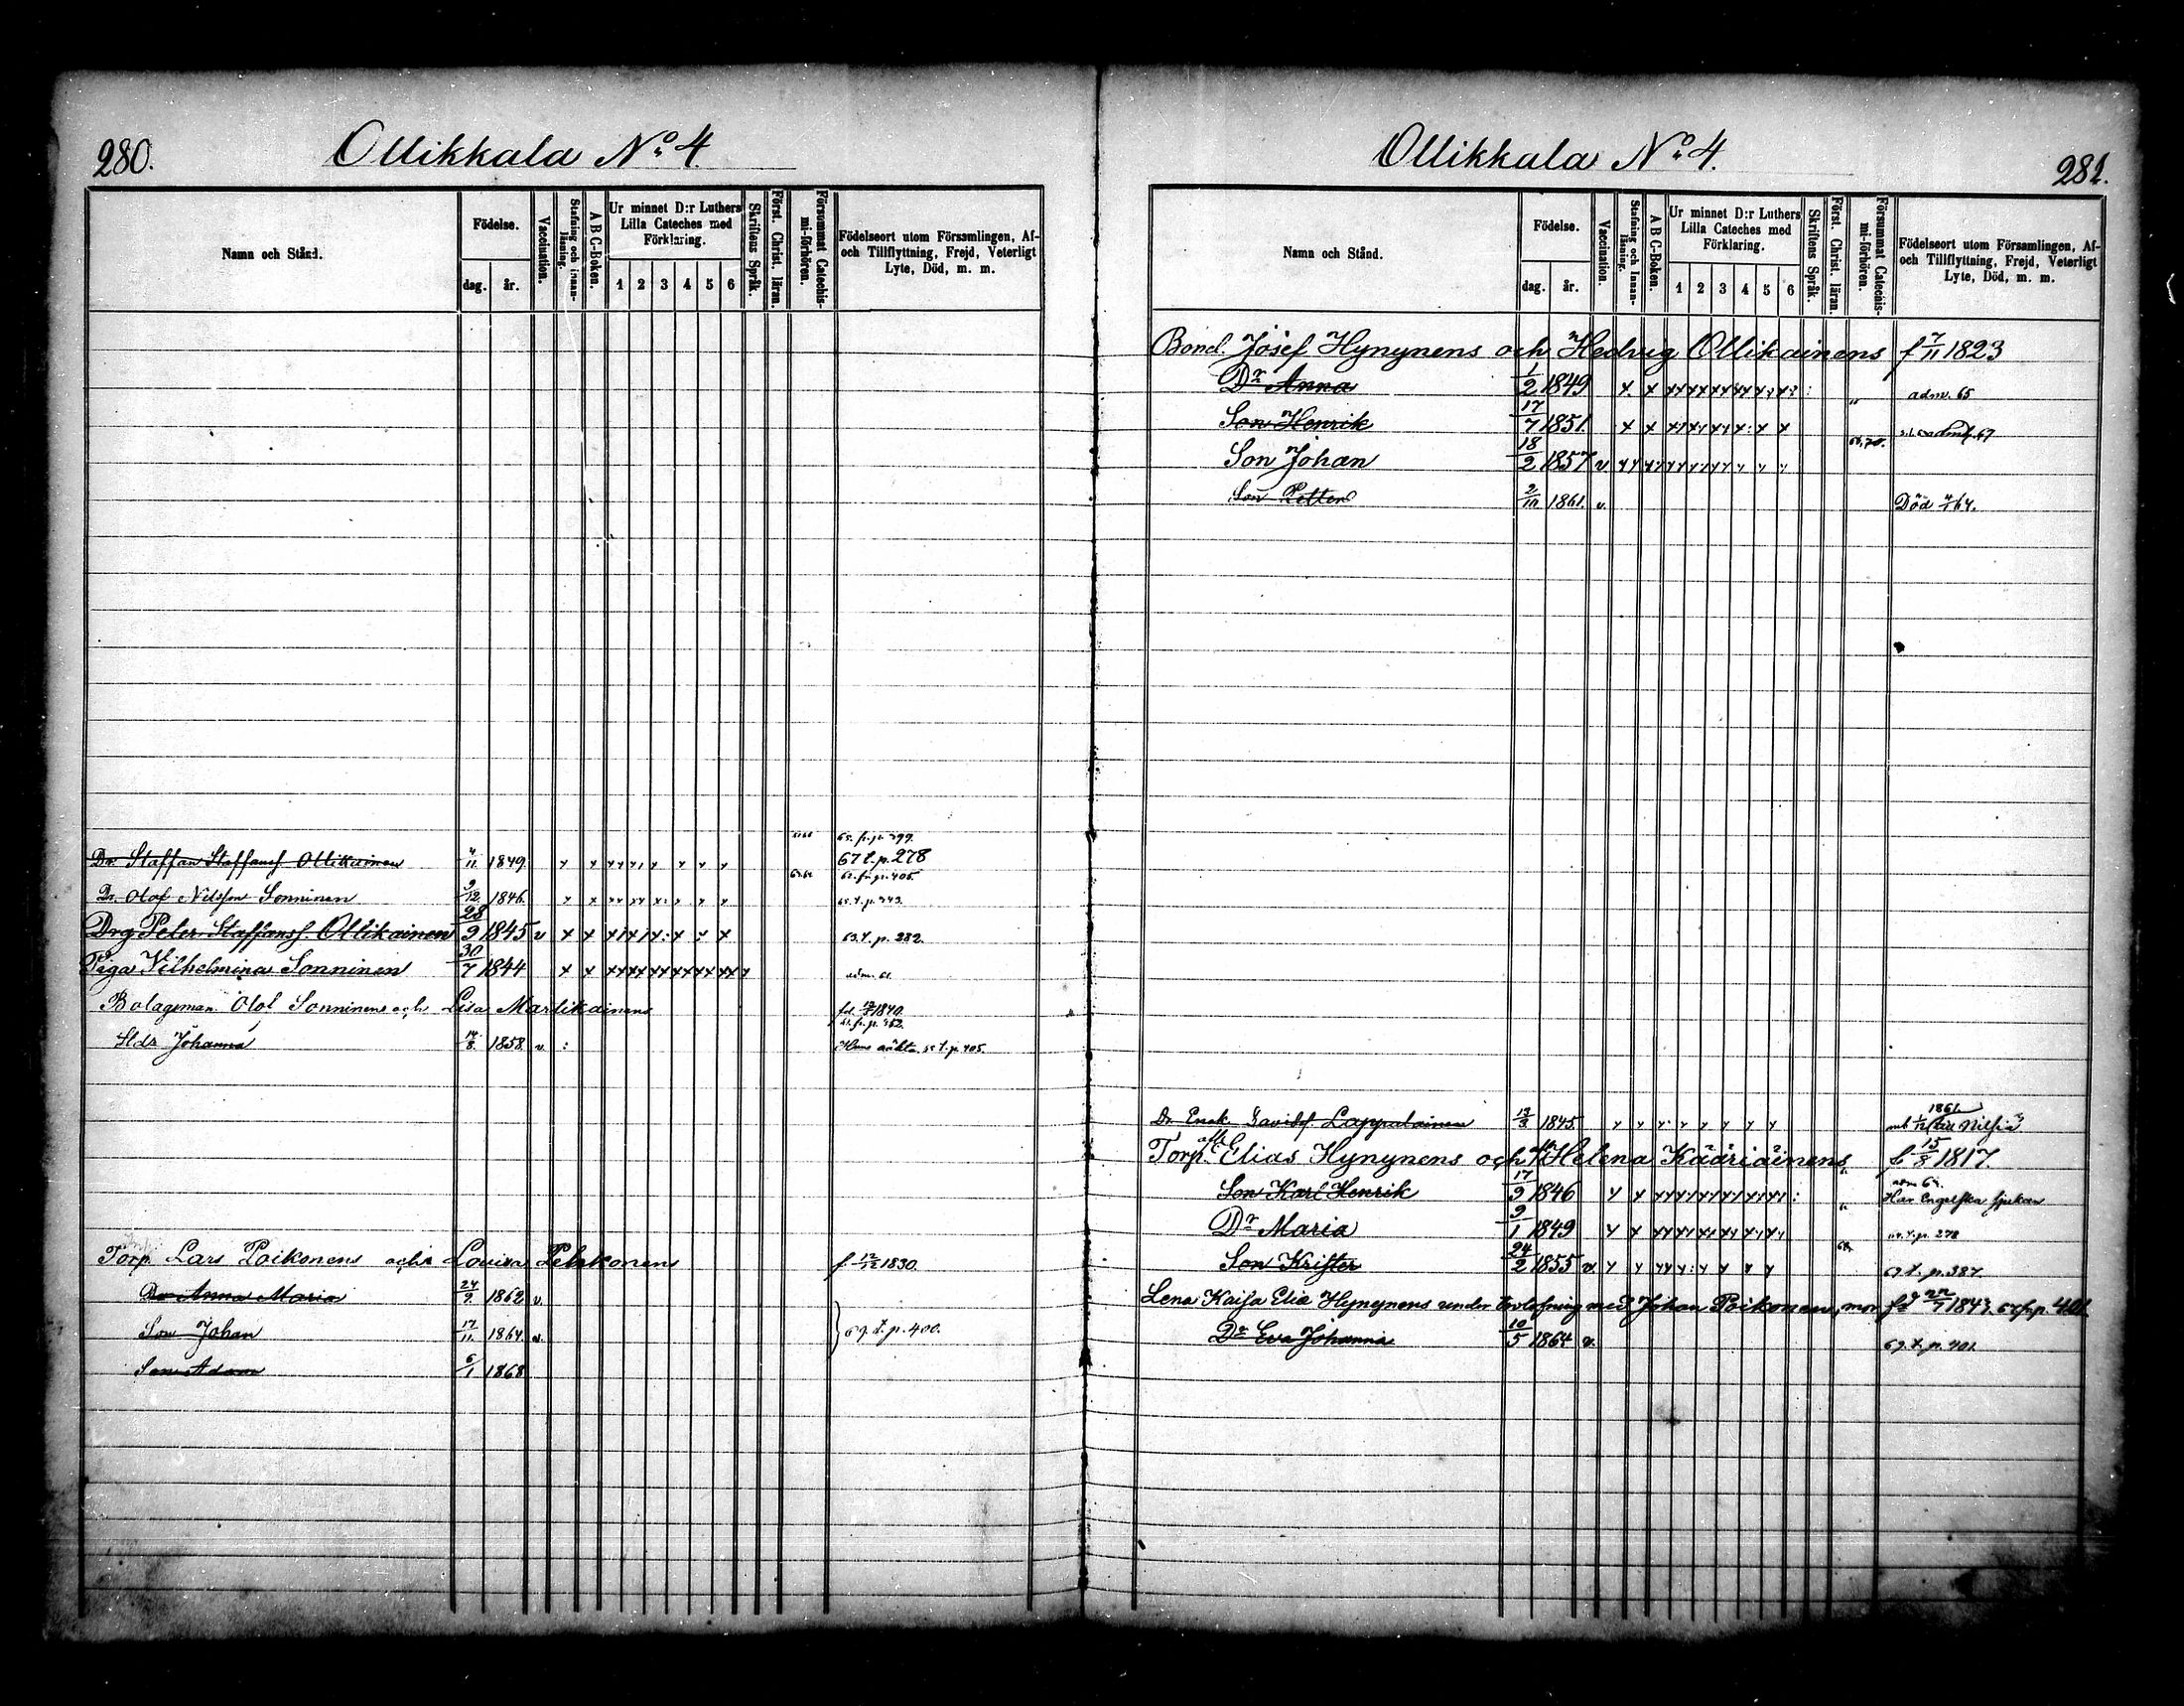 280.
Ollikkala No 4.
Namn och Stånd.
Födelse.
dag. år.
Vaccination.
Stafning och innanläsning.
A B C-Boken.
Ur minnet D:r Luthers Lilla Cateches med Förklaring.
1 2 3 4 5 6
Skriftens Språk.
Först. Christ. läran.
Försummat Catechismi-förhören.
Födelseort utom Församlingen, Af- och Tillflyttning, Frejd, Veterligt Lyte, Död, m. m.
65. fr. p. 399.
Dr. Staffan Staffanss. Ollikainen 4/11 1849. 67 t. p. 278
62. fr. p. 405.
Dr. Olof Nilsson Sonninen 9/12 1846. t. p. 343.
Drg Peter Staffanss. Ollikainen 28/9 1845 v 63. t. p. 382.
Piga Vilhelmina Sonninen 30/7 1844 adm. 61.
Bolagsman Olof Sonninens och Lisa Martikainens 1840.
fr. p. 362.
Johanna 14/8 1858. v. t. p. 405.
Torp. Lars Poikonens och Lovisa Pelkonens f 12/12 1830.
Dr Anna Maria 24/9 1862 v.
Son Johan 17/11 1864 v. 69. t. p. 400.
Son Adam 6/1 1868
Ollikkala No 4.
281.
Namn och Stånd.
Födelse.
dag. år.
Vaccination.
Stafning och Innanläsning.
A B C-Boken.
Ur minnet D:r Luthers Lilla Cateches med Förklaring.
1 2 3 4 5 6
Skriftens Språk.
Först. Christ. läran.
Försummat Catechismi-förhören.
Födelseort utom Församlingen, Af- och Tillflyttning, Frejd, Veterligt Lyte, Död, m. m.
Bond. Josef Hynynens och Hedvig Ollikainens f 7/11 1823
Dr Anna 1/2 1849 adm. 65
Son Henrik 17/7 1851. 67
Son Johan 18/2 1857 v.
Son Petter 2/10 1861. v. Död 64.
Dr. Enok Davidss. Lappalainen 13/3 1845. 1861
Torp. Elias Hynynens och Helena Kääriäinens f 15/8 1817.
Son Karl Henrik 17/9 1846 Har Engelska sjukan
Dr Maria 9/1 1849 t. p. 278
Son Krister 24/2 1855 v 69. t. p. 387.
Lena Kaisa Eliæ Hynynens under trolofning med Johan Poikonen, mor 1843 fr. p. 401
Dr Eva Johanna 10/5 1864 v. 69. t. p. 401.